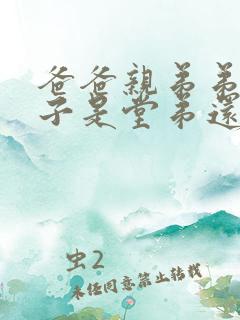 爸爸親弟弟
子是堂弟還
虫2
未经同意禁止转载